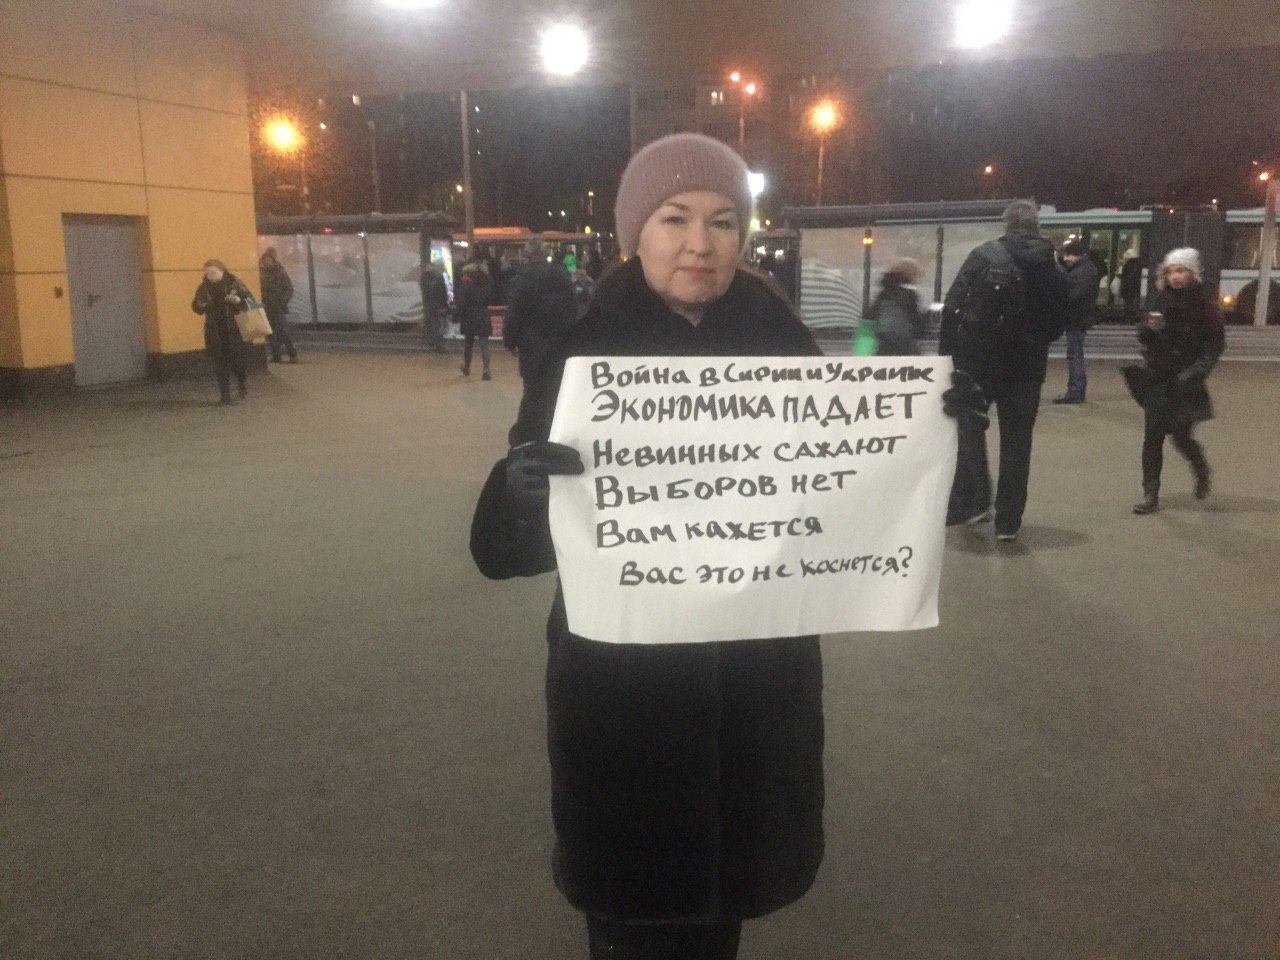 Война в Сирии и Украине
ЭКОНОМИКА ПАДАЕТ
Невинных сажают
Выборов нет
Вам кажется
Вас это не коснется?